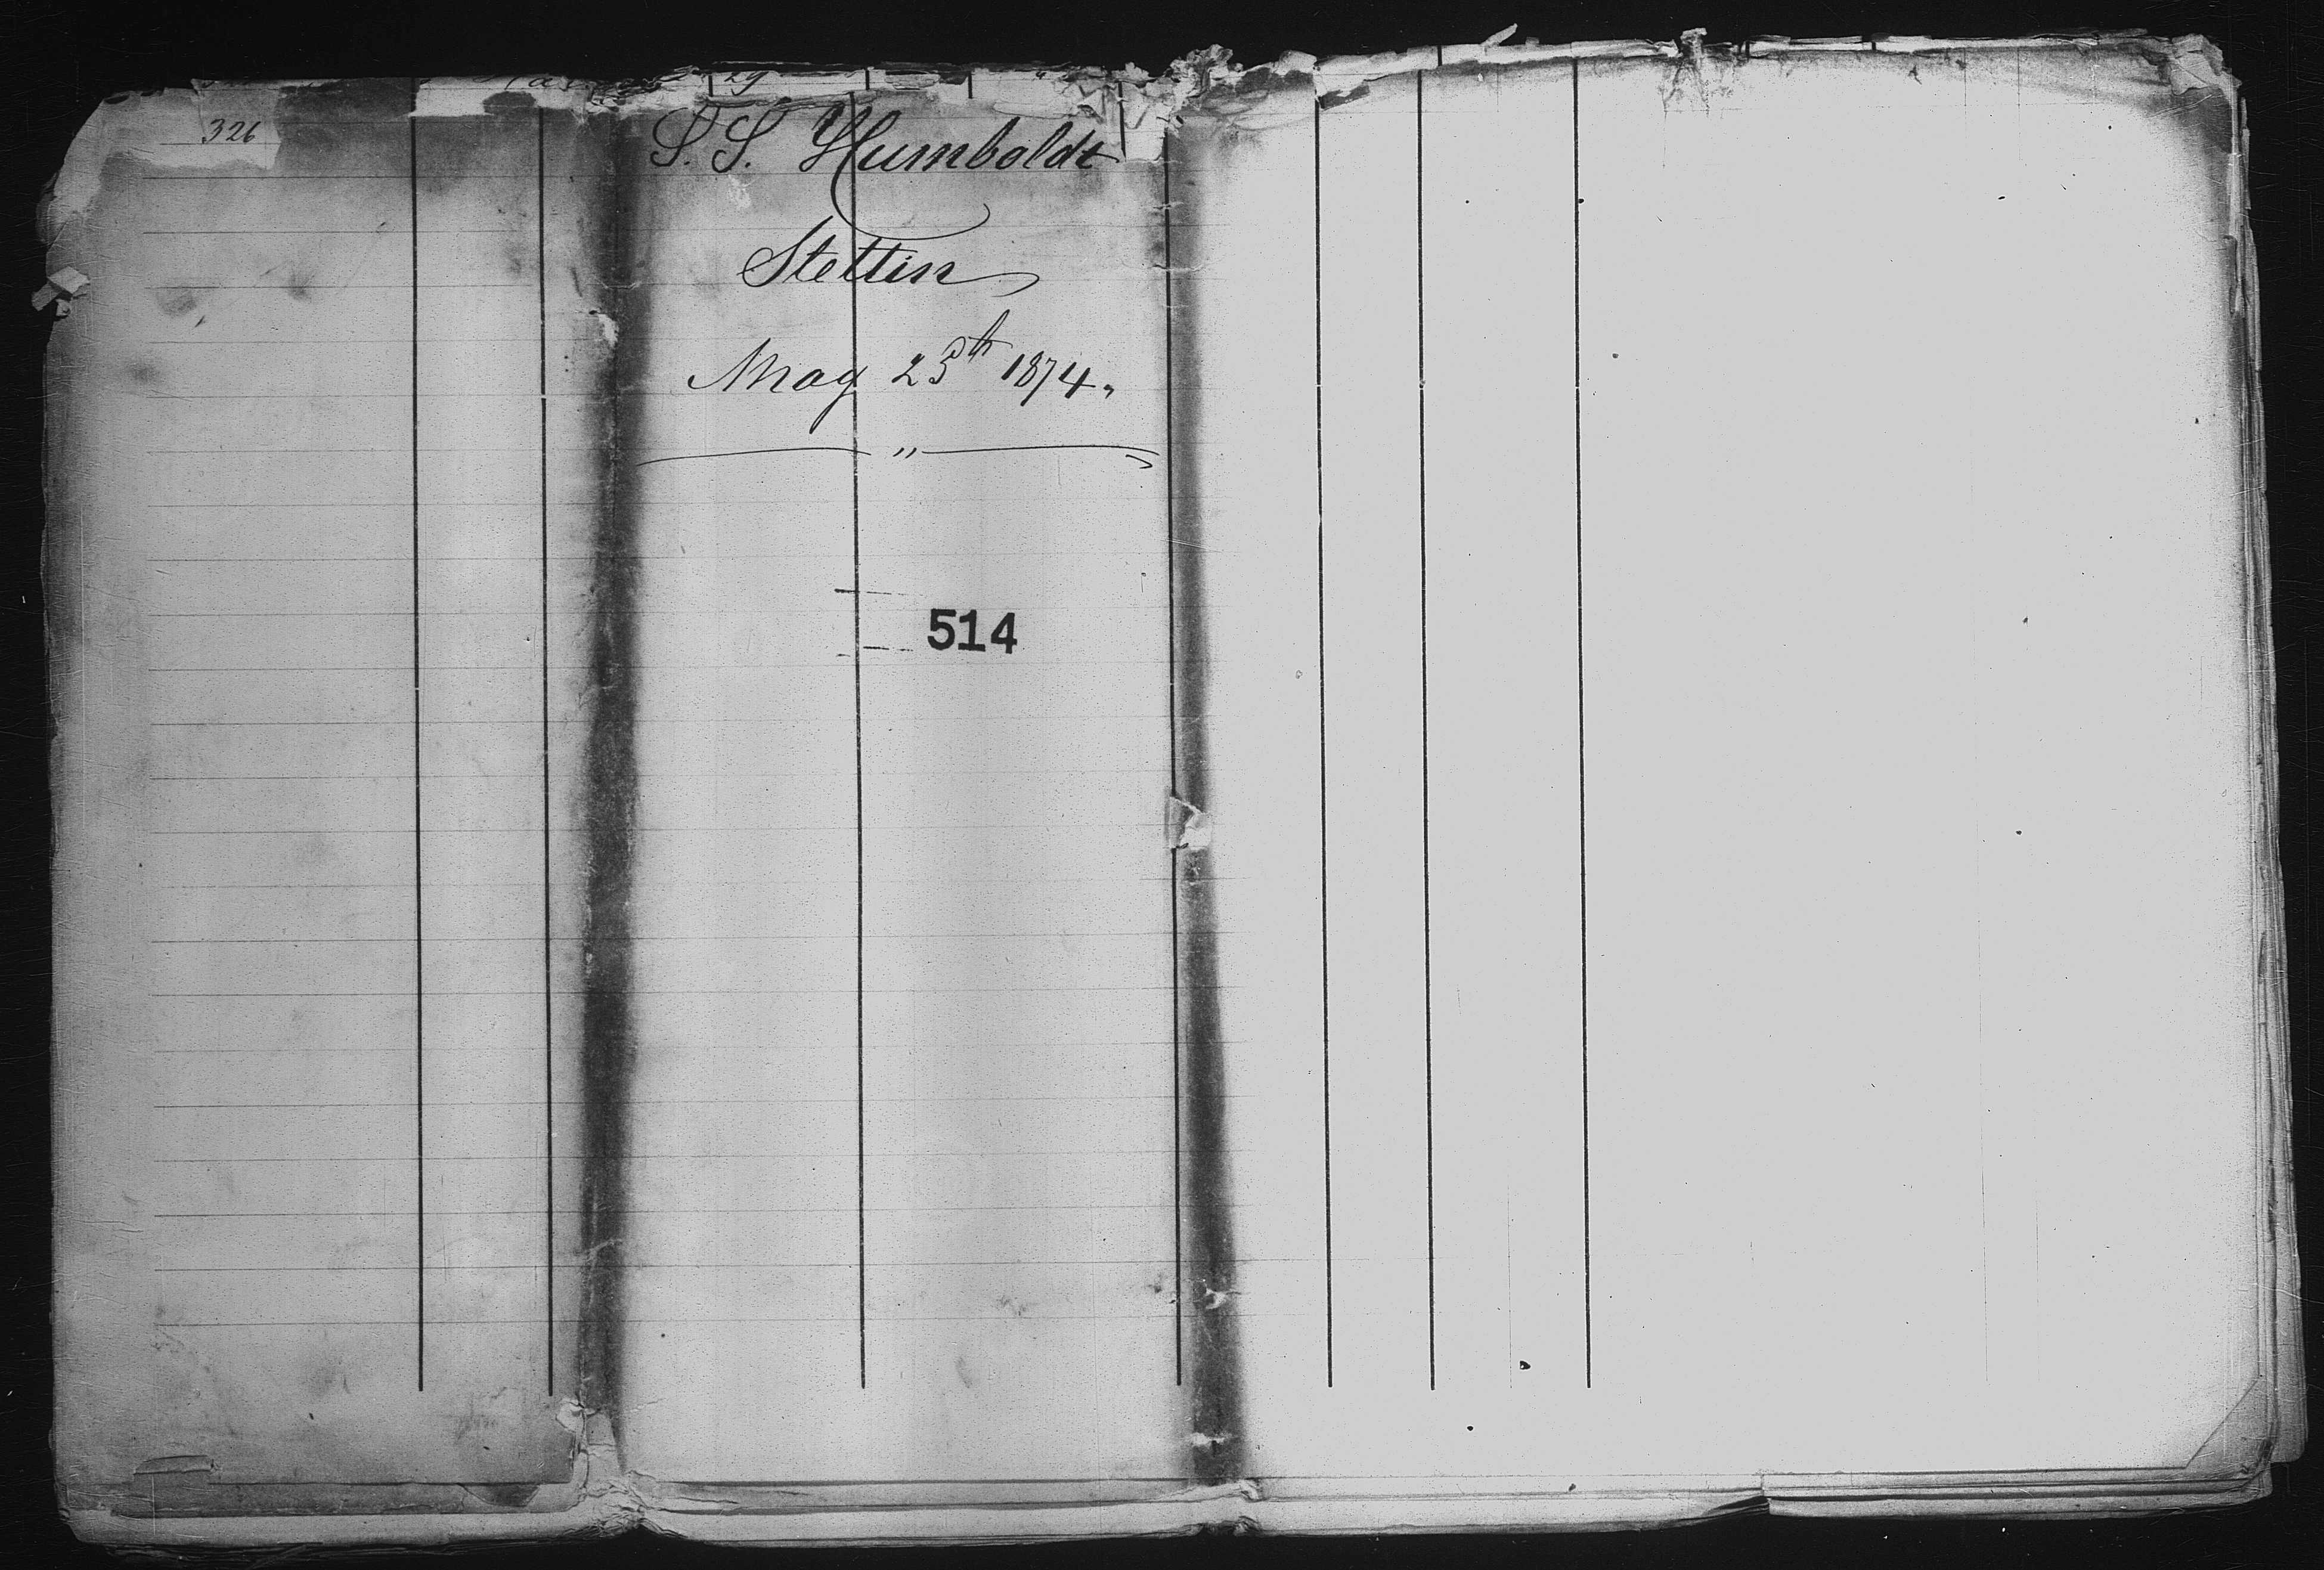 326
S. S. Humboldt
Stettin
May 25th 1874.
"
514